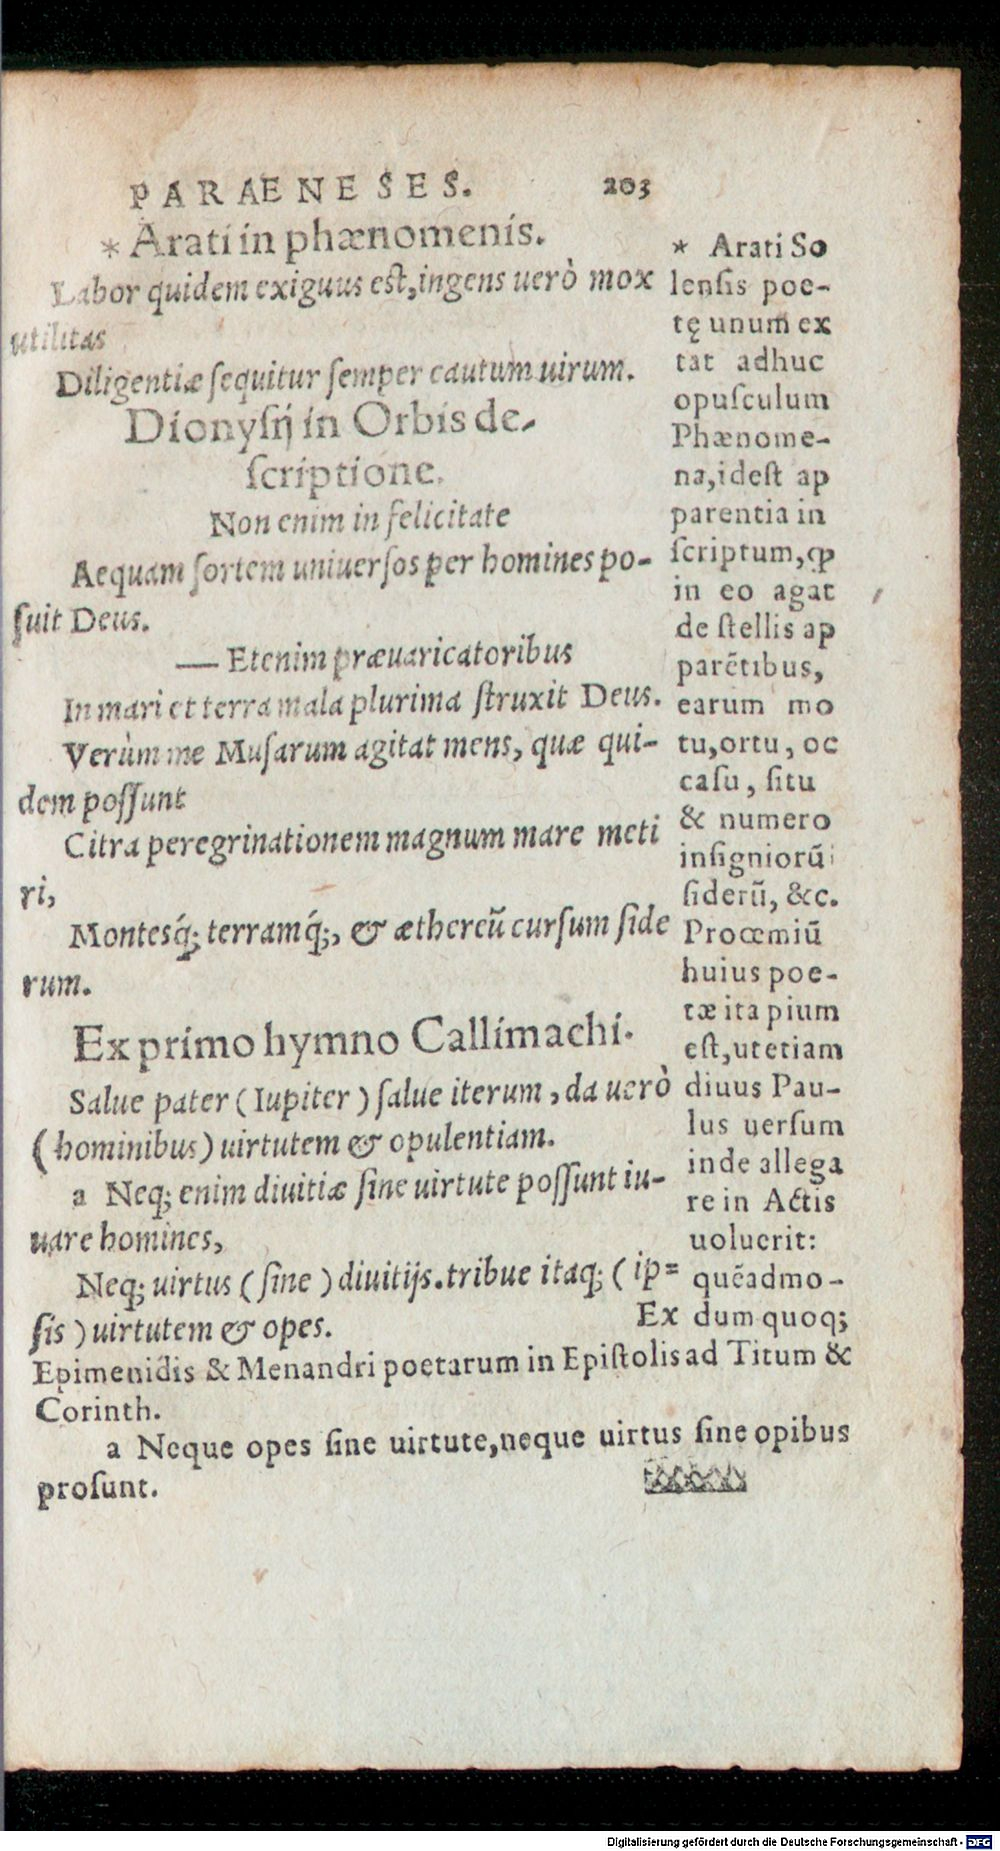 PARAENESES. 203
* Arati in phænomenis.
Labor quidem exiguus est, ingens uerò mox
utilitas
Diligentiæ sequitur semper cautum uirum.
Dionysij in Orbis de-
scriptione.
Non enim in felicitate
Aequam sortem uniuersos per homines po-
suit Deus.
— Etenim præuaricatoribus
In mari et terra mala plurima struxit Deus.
Verùm me Musarum agitat mens, quæ qui-
dem possunt
Citra peregrinationem magnum mare meti
ri,
Montesq́; terramq́;, & æthereũ cursum side
rum.
Ex primo hymno Callimachi.
Salue pater (Iupiter) salue iterum, da uerò
(hominibus) uirtutem & opulentiam.
a Neq; enim diuitiæ sine uirtute possunt iu-
uare homines,
Neq; uirtus (sine) diuitijs. tribue itaq; (ip=
sis) uirtutem & opes.
Ex
* Arati So
lensis poe-
tę unum ex
tat adhuc
opusculum
Phænome-
na, idest ap
parentia in
scriptum, ꝙ
in eo agat
de stellis ap
parẽtibus,
earum mo
tu, ortu, oc
casu, situ
& numero
insigniorũ
siderũ, &c.
Proœmiũ
huius poe-
tæ ita pium
est, ut etiam
diuus Pau-
lus uersum
inde allega
re in Actis
uoluerit:
quẽadmo-
dum quoq;
Epimenidis & Menandri poetarum in Epistolis ad Titum &
Corinth.
a Neque opes sine uirtute, neque uirtus sine opibus
prosunt.
Digitalisierung gefördert durch die Deutsche Forschungsgemeinschaft - DFG